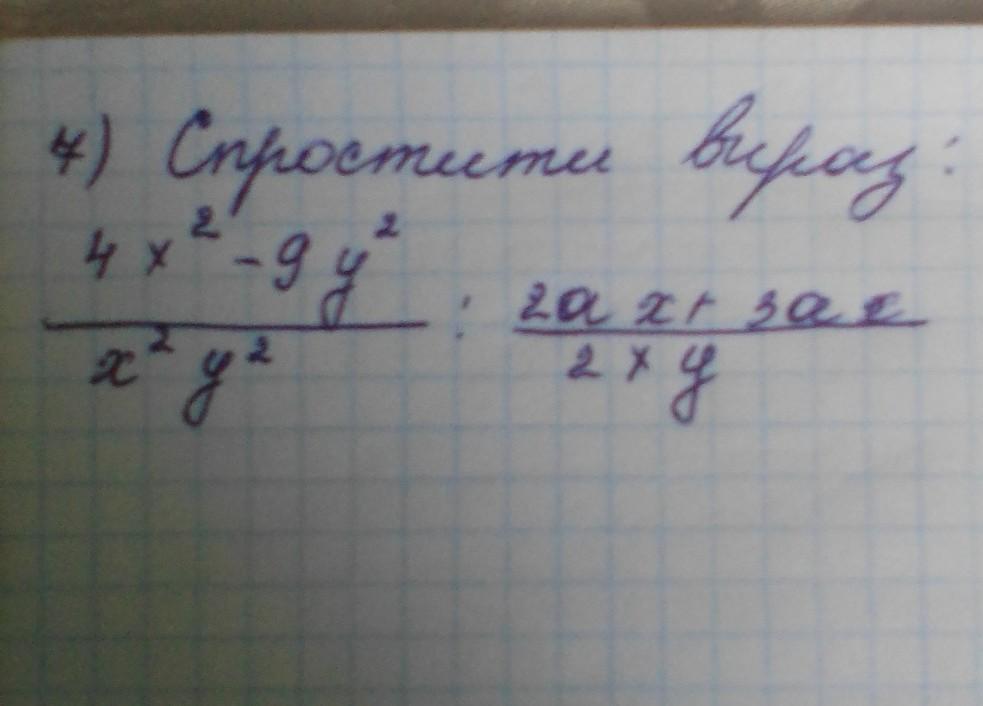 7) Спростити вираз:
4x² - 9y² / x² y² : 2ax + 3ax / 2xy